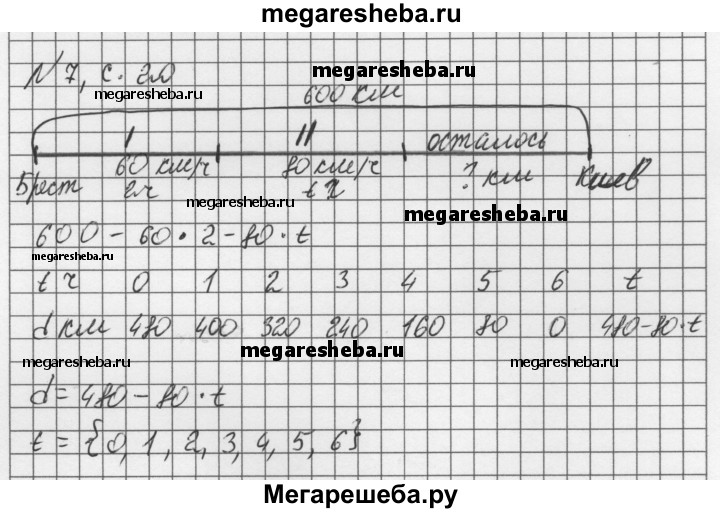 megaresheba.ru
N 7, с. 20
megaresheba.ru
megaresheba.ru
600 км
I II осталось
60 км/ч 80 км/ч ? км
Брест 2ч t ч Киев
megaresheba.ru
megaresheba.ru
600 - 60 · 2 - 80 · t
megaresheba.ru
t ч 0 1 2 3 4 5 6 t
d км 480 400 320 240 160 80 0 480-80·t
megaresheba.ru
megaresheba.ru
megaresheba.ru
d = 480 - 80 · t
t = {0, 1, 2, 3, 4, 5, 6}
Мегарешеба.ру